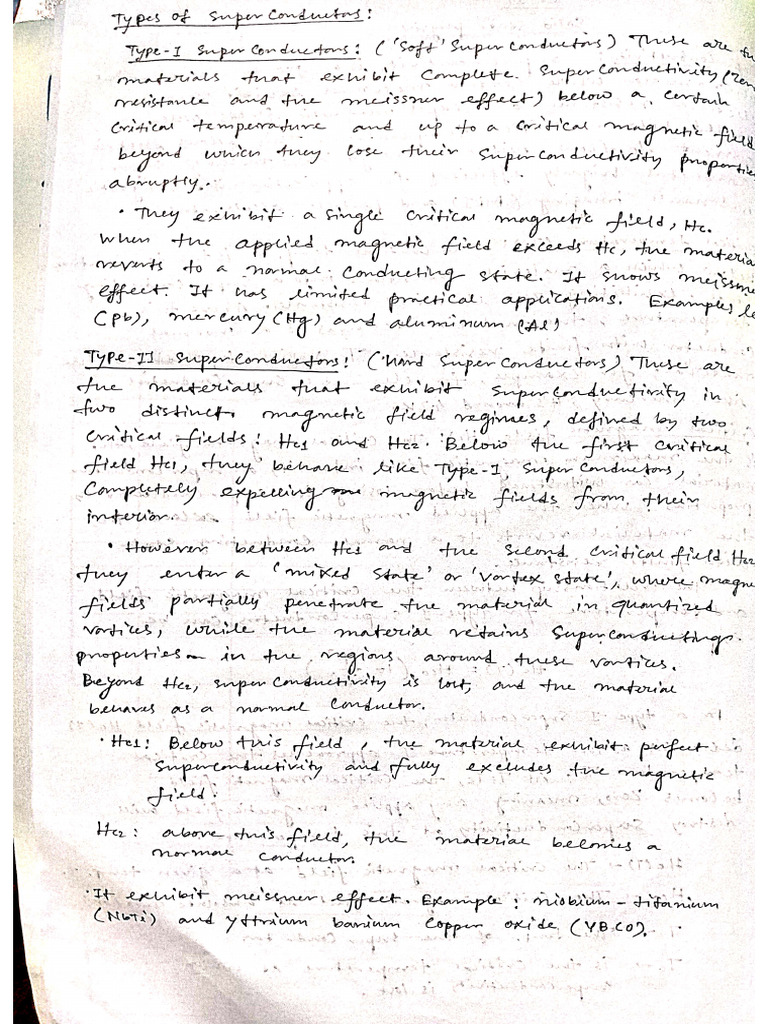 Types of Superconductors:
Type-I Superconductors: ('Soft' Superconductors) These are
materials that exhibit complete superconductivity
resistance and the meissner effect) below a certain
critical temperature and up to a critical magnetic field
beyond which they lose their superconductivity
abruptly.
• They exhibit a single critical magnetic field, Hc.
When the applied magnetic field exceeds Hc, the
reverts to a normal conducting state. It shows
effect. It has limited practical applications. Examples
(Pb), mercury (Hg) and aluminum (Al)
Type-II Superconductors: (Hard Superconductors) These are
the materials that exhibit superconductivity in
two distinct magnetic field regimes, defined by two
critical fields: Hc1 and Hc2. Below the first critical
field Hc1, they behave like Type-I superconductors,
Completely expelling magnetic fields from their
interior.
• However between Hc1 and the second critical field Hc2
they enter a 'mixed state' or 'vortex state', where
fields partially penetrate the material in quantized
vortices, while the material retains superconducting
properties in the regions around these vortices.
Beyond Hc2, superconductivity is lost, and the material
behaves as a normal conductor.
• Hc1: Below this field, the material exhibit perfect
superconductivity and fully excludes the magnetic
field.
Hc2: above this field, the material becomes a
normal conductor.
• It exhibit meissner effect. Example: niobium-titanium
(NbTi) and yttrium barium copper oxide (YBCO).